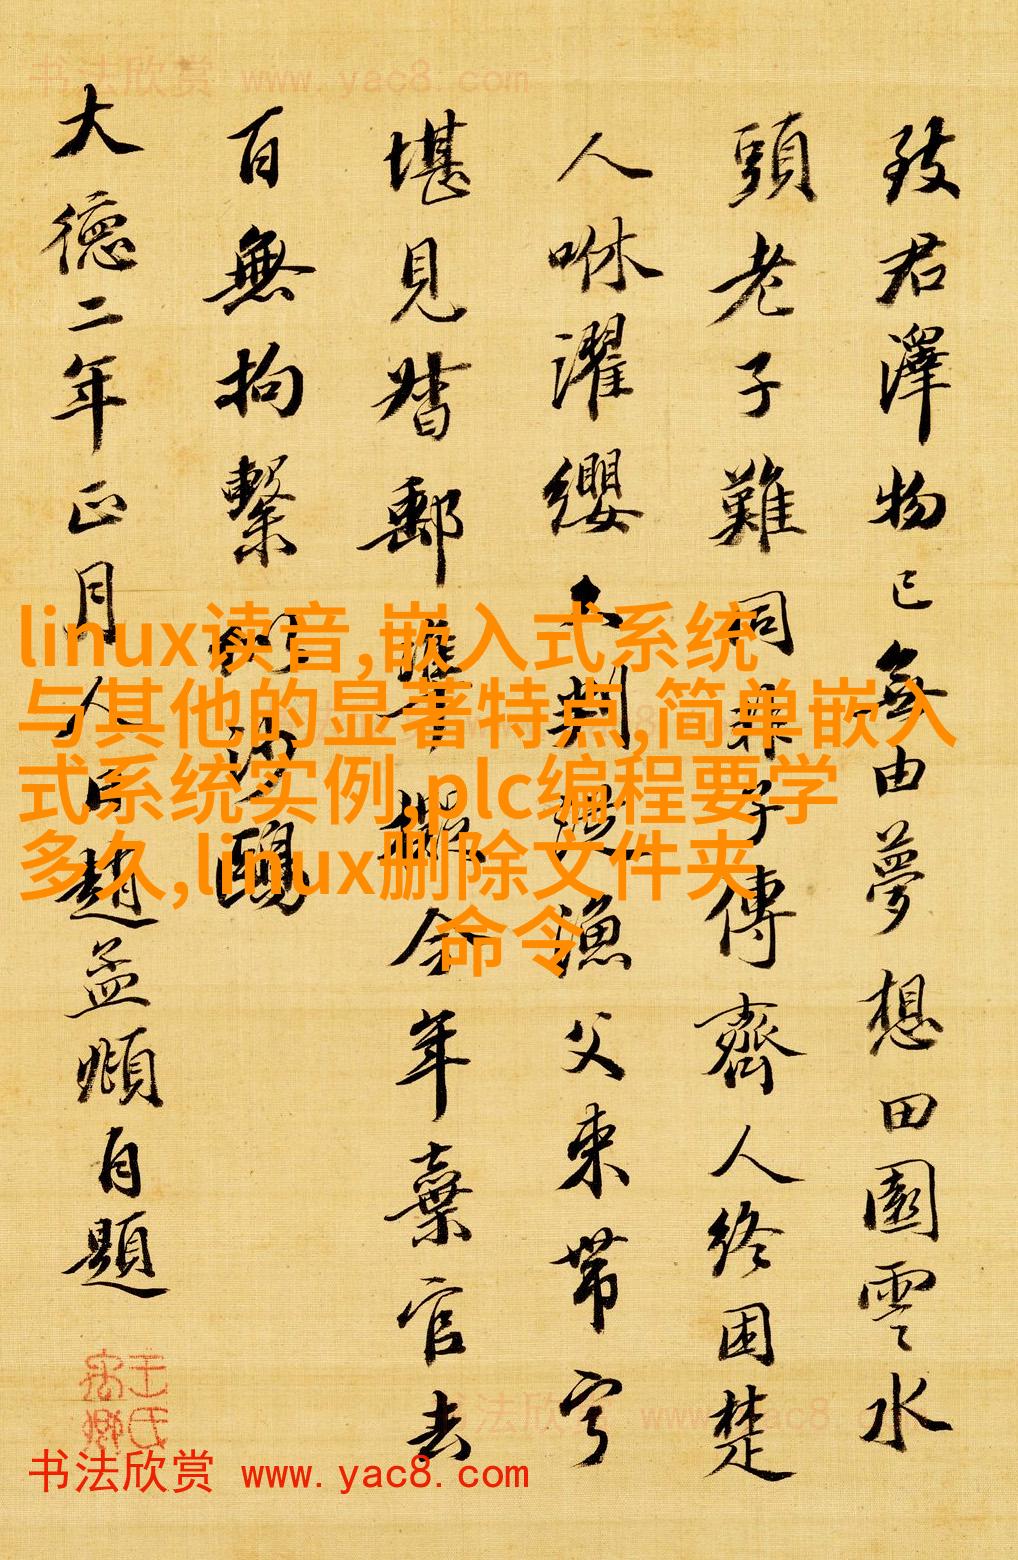 書法欣赏 www.yac8.com
致君澤物已無由夢想田園雲水
頭老子難同非子傳齊人終困楚
人咻濯纓久判從漁父束帶寧
堪見督郵準擬今年棄官去
百無拘繫似沙鷗
大德二年正月人日趙孟頫自題
linux读音,嵌入式系统
与其他的显著特点,简单嵌入
式系统实例,plc编程要学
多久,linux删除文件夹
命令
书法欣赏 www.yac8.com